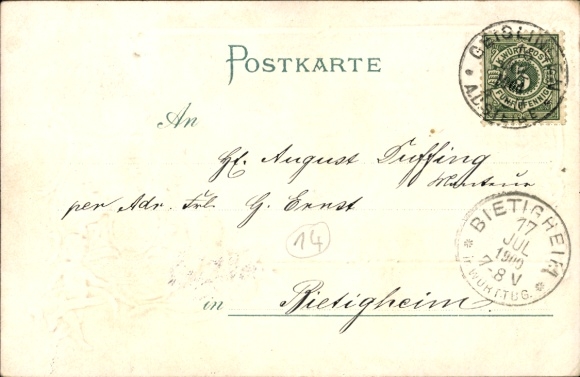 POSTKARTE
GEISLINGEN
K. WÜRTT. POST
5
FÜNF PFENNIG
An
August Duffing
Monteur
per Adr. Frl. G. Ernst
14
BIETIGHEIM
17
JUL
1900
7-8 V
WÜRTTBG.
in Bietigheim